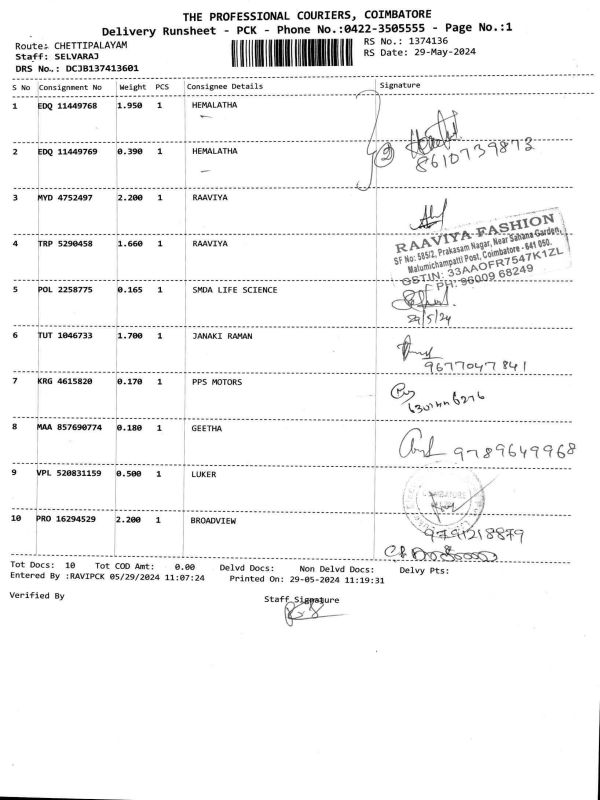 THE PROFESSIONAL COURIERS, COIMBATORE
Delivery Runsheet - PCK - Phone No.:0422-3505555 - Page No.:1
Route: CHETTIPALAYAM
RS No.: 1374136
Staff: SELVARAJ
RS Date: 29-May-2024
DRS No.: DCJB137413601
S No Consignment No Weight PCS Consignee Details Signature
1 EDQ 11449768 1.950 1 HEMALATHA
2 EDQ 11449769 0.390 1 HEMALATHA
2
8610739873
3 MYD 4752497 2.200 1 RAAVIYA
4 TRP 5290458 1.660 1 RAAVIYA
RAAVIYA FASHION
SF No: 585/2, Prakasam Nagar, Near Sahana Garden,
Malumichampatti Post, Coimbatore - 641 050.
GSTIN: 33AAOFR7547K1ZL
PH: 96009 68249
5 POL 2258775 0.165 1 SMDA LIFE SCIENCE
29/5/24
6 TUT 1046733 1.700 1 JANAKI RAMAN
9677047841
7 KRG 4615820 0.170 1 PPS MOTORS
8 MAA 857690774 0.180 1 GEETHA
9789649968
9 VPL 520831159 0.500 1 LUKER
COIMBATORE
10 PRO 16294529 2.200 1 BROADVIEW
9791218879
Tot Docs: 10 Tot COD Amt: 0.00 Delvd Docs: Non Delvd Docs: Delvy Pts:
Entered By :RAVIPCK 05/29/2024 11:07:24 Printed On: 29-05-2024 11:19:31
Verified By
Staff Signature